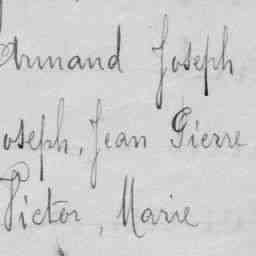 Armand Joseph
Joseph, Jean Pierre
Victor, Marie